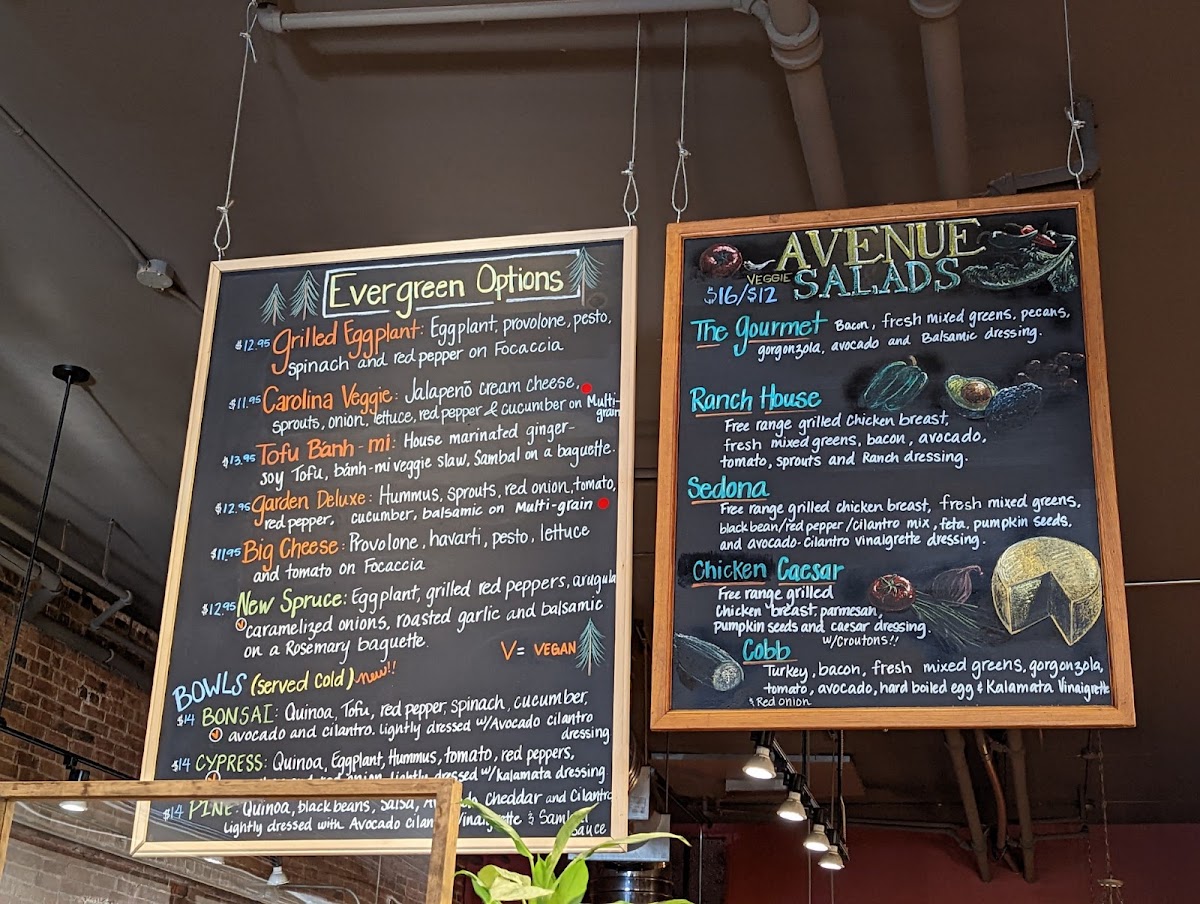 Evergreen Options
$12.95 Grilled Eggplant: Eggplant, provolone, pesto,
spinach and red pepper on Focaccia
$11.95 Carolina Veggie: Jalapenō cream cheese,
sprouts, onion, lettuce, red pepper & cucumber on Multi-
grain
$13.95 Tofu Bánh-mi: House marinated ginger-
soy Tofu, bánh-mi veggie slaw, Sambal on a baguette.
$12.95 Garden Deluxe: Hummus, sprouts, red onion, tomato,
red pepper, cucumber, balsamic on Multi-grain
$11.95 Big Cheese: Provolone, havarti, pesto, lettuce
and tomato on Focaccia
$12.95 New Spruce: Eggplant, grilled red peppers, arugula
V caramelized onions, roasted garlic and balsamic
on a Rosemary baguette.
V = VEGAN
BOWLS (served cold) new!!
$14 BONSAI: Quinoa, Tofu, red pepper, spinach, cucumber,
V avocado and cilantro. Lightly dressed w/Avocado cilantro
dressing
$14 CYPRESS: Quinoa, Eggplant, Hummus, tomato, red peppers,
onion, lightly dressed w/kalamata dressing.
$14 PINE: Quinoa, black beans, salsa, Cheddar and Cilantro
Lightly dressed with Avocado & Sauce
AVENUE
VEGGIE SALADS
$16/$12
The Gourmet Bacon, fresh mixed greens, pecans,
gorgonzola, avocado and Balsamic dressing.
Ranch House
Free range grilled Chicken breast,
fresh mixed greens, bacon, avocado,
tomato, sprouts and Ranch dressing.
Sedona
Free range grilled chicken breast, fresh mixed greens,
black bean/red pepper/cilantro mix, feta, pumpkin seeds,
and avocado-cilantro vinaigrette dressing.
Chicken Caesar
Free range grilled
Chicken breast, parmesan,
pumpkin seeds and caesar dressing.
w/Croutons!!
Cobb
Turkey, bacon, fresh mixed greens, gorgonzola,
tomato, avocado, hard boiled egg & Kalamata Vinaigrette
& Red onion